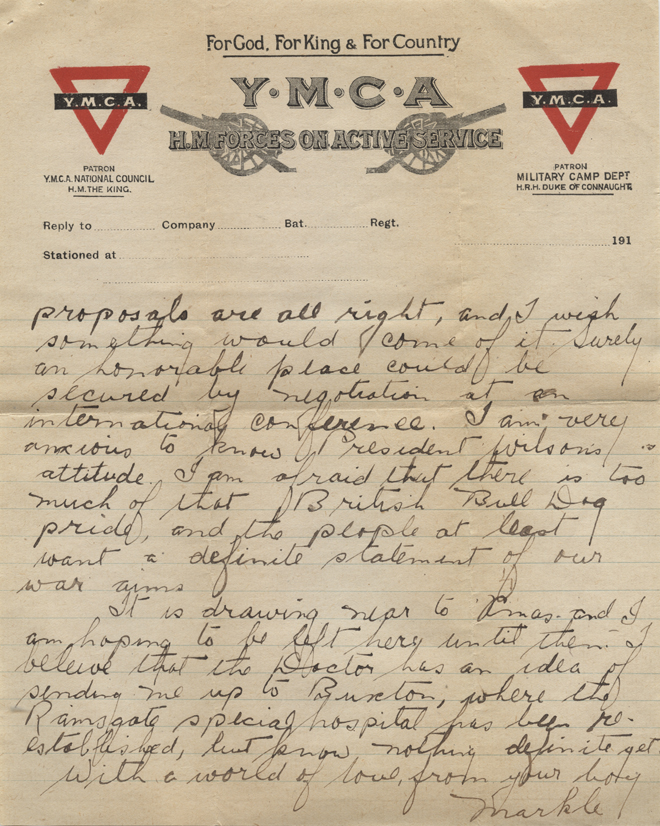 For God, For King & For Country
Y·M·C·A
H.M FORCES ON ACTIVE SERVICE
Y.M.C.A.
PATRON
Y.M.C.A. NATIONAL COUNCIL
H.M. THE KING.
Y.M.C.A.
PATRON
MILITARY CAMP DEPT
H.R.H. DUKE OF CONNAUGHT
Reply to Company Bat. Regt.
191
Stationed at
proposals are all right, and I wish
something would come of it. Surely
an honorable peace could be
secured by negotiation at an
international conference. I am very
anxious to know President Wilsons
attitude. I am afraid that there is too
much of that British Bull Dog
pride, and the people at least
want a definite statement of our
war aims
It is drawing near to Xmas. and I
am hoping to be left here until then. I
beleive that the Doctor has an idea of
sending me up to Buxton, where the
Ramsgate special hospital has been re-
established, but know nothing definite yet.
With a world of love, from your boy
Markle